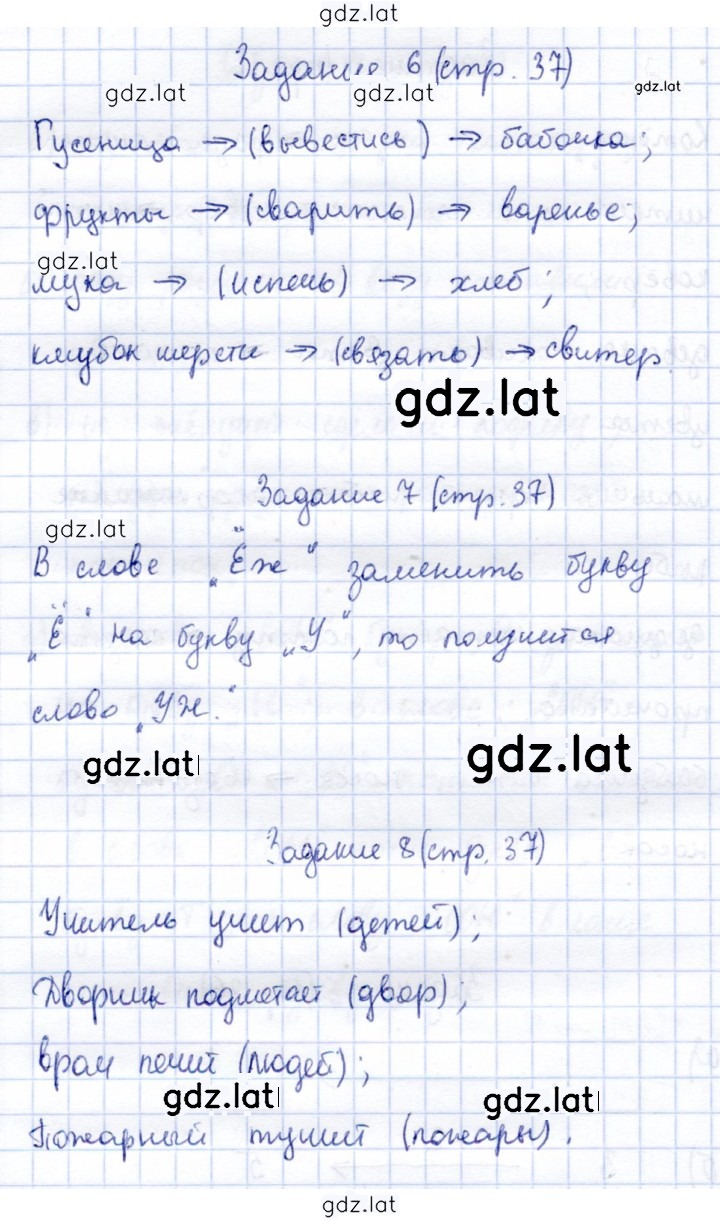 gdz.lat
Задание 6 (стр. 37)
gdz.lat gdz.lat gdz.lat
Гусеница → (вывестись) → бабочка;
фрукты → (сварить) → варенье;
gdz.lat
мука → (испечь) → хлеб;
клубок шерсти → (связать) → свитер
gdz.lat
Задание 7 (стр. 37)
gdz.lat
В слове „Ёж“ заменить букву
„Ё“ на букву „У“, то получится
слово „Уж.“
gdz.lat gdz.lat
Задание 8 (стр. 37)
Учитель учит (детей);
Дворник подметает (двор);
врач лечит (людей);
gdz.lat gdz.lat
Пожарный тушит (пожары).
gdz.lat